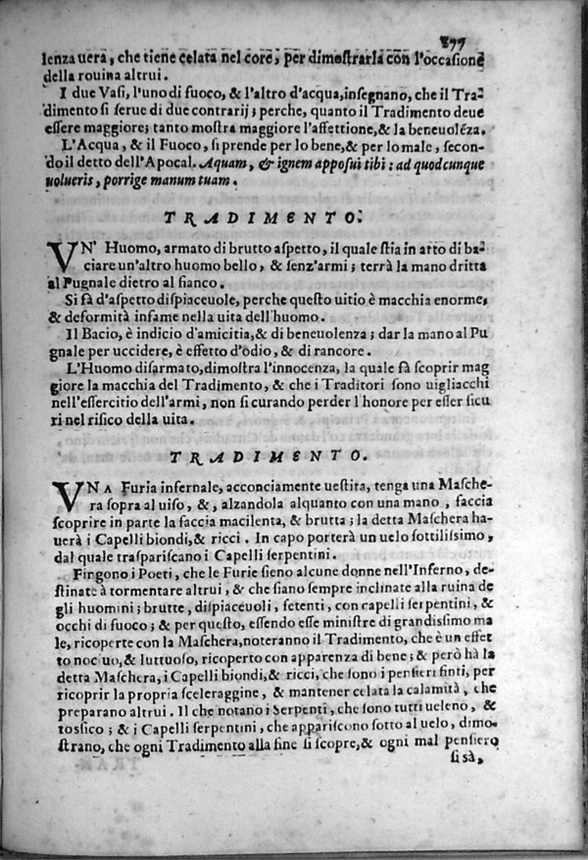 277
lenza uera, che tiene celata nel core, per dimostrarla con l'occasione
della rouina altrui.
I due Vasi, l'uno di fuoco, & l'altro d'acqua, insegnano, che il Tra-
dimento si serue di due contrarij; perche, quanto il Tradimento deue
essere maggiore; tanto mostra maggiore l'affettione, & la beneuolẽza.
L'Acqua, & il Fuoco, si prende per lo bene, & per lo male, secon-
do il detto dell'Apocal. Aquam, & ignem apposui tibi: ad quodcunque
uolueris, porrige manum tuam.
TRADIMENTO.
VN' Huomo, armato di brutto aspetto, il quale stia in atto di ba-
ciare un'altro huomo bello, & senz'armi; terrà la mano dritta
al Pugnale dietro al fianco.
Si fà d'aspetto dispiaceuole, perche questo uitio è macchia enorme,
& deformità infame nella uita dell'huomo.
Il Bacio, è indicio d'amicitia, & di beneuolenza; dar la mano al Pu
gnale per uccidere, è effetto d'odio, & di rancore.
L'Huomo disarmato, dimostra l'innocenza, la quale fà scoprir mag
giore la macchia del Tradimento, & che i Traditori sono uigliacchi
nell'essercitio dell'armi, non si curando perder l'honore per esser sicu
ri nel risico della uita.
TRADIMENTO.
VNA Furia infernale, acconciamente uestita, tenga una Masche-
ra sopra al uiso, &, alzandola alquanto con una mano, faccia
scoprire in parte la faccia macilenta, & brutta; la detta Maschera ha-
uerà i Capelli biondi, & ricci. In capo porterà un uelo sottilissimo,
dal quale traspariscano i Capelli serpentini.
Fingono i Poeti, che le Furie sieno alcune donne nell'Inferno, de-
stinate à tormentare altrui, & che siano sempre inclinate alla ruina de
gli huomini; brutte, dispiaceuoli, fetenti, con capelli serpentini, &
occhi di fuoco; & per questo, essendo esse ministre di grandissimo ma
le, ricoperte con la Maschera, noteranno il Tradimento, che è un effet
to nociuo, & luttuoso, ricoperto con apparenza di bene; & però hà la
detta Maschera, i Capelli biondi, & ricci, che sono i pensieri finti, per
ricoprir la propria sceleraggine, & mantener celata la calamità, che
preparano altrui. Il che notano i Serpenti, che sono tutti ueleno, &
tossico; & i Capelli serpentini, che appariscono sotto al uelo, dimo-
strano, che ogni Tradimento alla fine si scopre, & ogni mal pensiero
si sà,